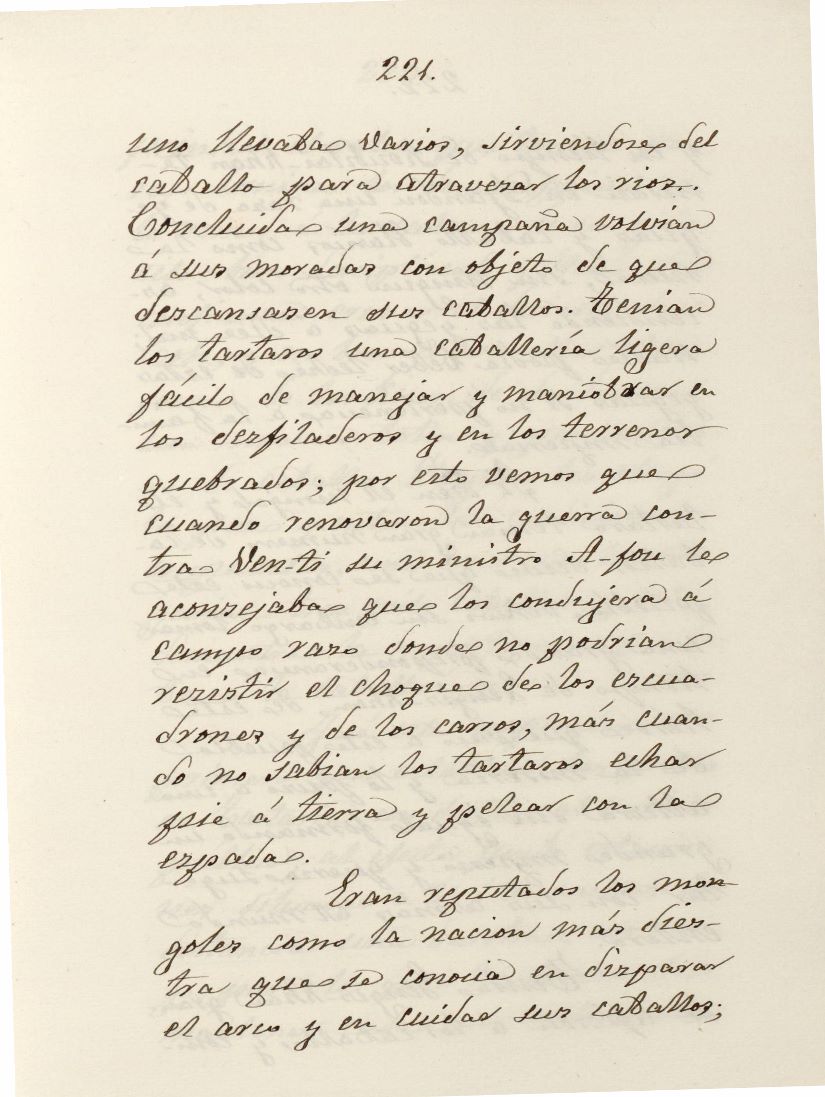 221.
uno llevaba varios, sirviendose del
caballo para atravezar los rios.
Concluida una campaña volvian
á sus moradas con objeto de que
descansasen sus caballos. Tenian
los tartaros una caballería ligera
fácil de manejar y maniobrar en
los desfiladeros y en los terrenos
quebrados; por esto vemos que
cuando renovaron la guerra con-
tra Ven-ti su ministro A-fou le
aconsejaba que los condujera á
campo raso donde no podrian
resistir el choque de los escua-
drones y de los carros, más cuan-
do no sabian los tartaros echar
pie á tierra y pelear con la
espada.
Eran reputados los mon-
goles como la nacion más dies-
tra que se conocia en disparar
el arco y en cuidar sus caballos;